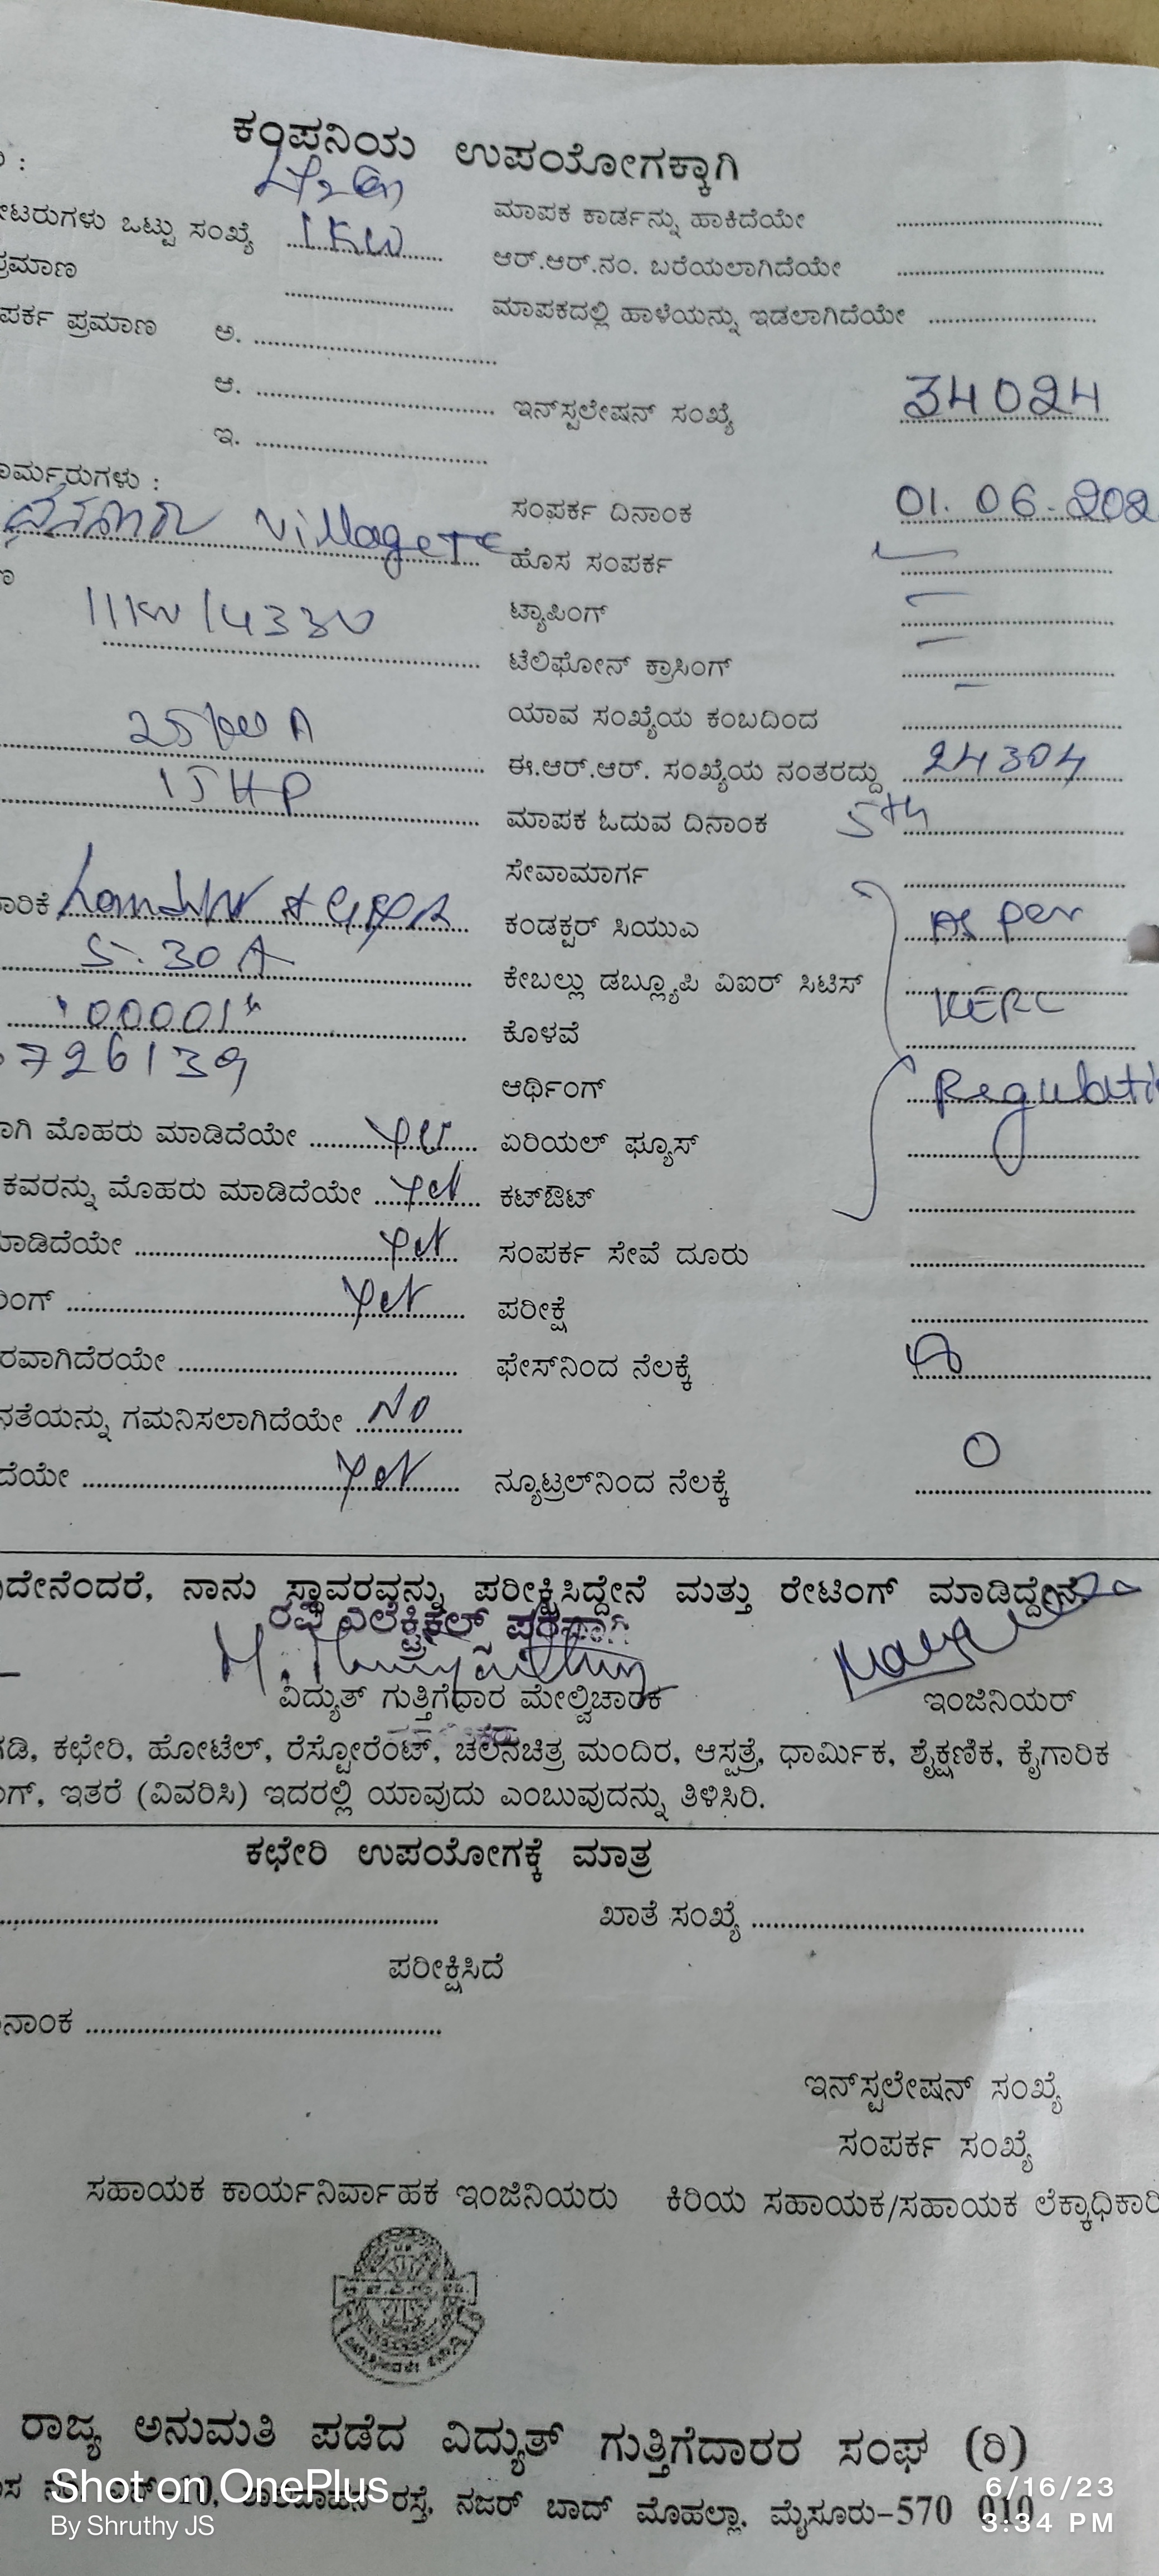 ಕಂಪನಿಯ ಉಪಯೋಗಕ್ಕಾಗಿ
ೇಟರುಗಳು ಒಟ್ಟು ಸಂಖ್ಯೆ 1KW ಮಾಪಕ ಕಾರ್ಡನ್ನು ಹಾಕಿದೆಯೇ
ಪ್ರಮಾಣ ಆರ್.ಆರ್.ನಂ. ಬರೆಯಲಾಗಿದೆಯೇ
ಪರ್ಕ ಪ್ರಮಾಣ ಅ. ಮಾಪಕದಲ್ಲಿ ಹಾಳೆಯನ್ನು ಇಡಲಾಗಿದೆಯೇ
ಆ. ಇನ್‌ಸ್ಟಲೇಷನ್ ಸಂಖ್ಯೆ 34024
ಇ.
ಾರ್ಮರುಗಳು :
village TC ಸಂಪರ್ಕ ದಿನಾಂಕ 01.06.202
ಹೊಸ ಸಂಪರ್ಕ
11KV/433V ಟ್ಯಾಪಿಂಗ್
ಟೆಲಿಫೋನ್ ಕ್ರಾಸಿಂಗ್
25 KVA ಯಾವ ಸಂಖ್ಯೆಯ ಕಂಬದಿಂದ
15HP ಈ.ಆರ್.ಆರ್. ಸಂಖ್ಯೆಯ ನಂತರದ್ದು 24304
ಮಾಪಕ ಓದುವ ದಿನಾಂಕ 5th
ಸೇವಾಮಾರ್ಗ
ಾರಿಕೆ ಕಂಡಕ್ಟರ್ ಸಿಯುಎ As per
5-30A ಕೇಬಲ್ಲು ಡಬ್ಲ್ಯೂಪಿ ವಿಐರ್ ಸಿಟಿಸ್ KERC
"00001" ಕೊಳವೆ
726139 ಆರ್ಥಿಂಗ್ Regulati
ಾಗಿ ಮೊಹರು ಮಾಡಿದೆಯೇ yes ಏರಿಯಲ್ ಫ್ಯೂಸ್
ಕವರನ್ನು ಮೊಹರು ಮಾಡಿದೆಯೇ yes ಕಟ್‌ಔಟ್
ಮಾಡಿದೆಯೇ yes ಸಂಪರ್ಕ ಸೇವೆ ದೂರು
ಿಂಗ್ yes ಪರೀಕ್ಷೆ
ರವಾಗಿದೆರಯೇ ಫೇಸ್‌ನಿಂದ ನೆಲಕ್ಕೆ
ನತೆಯನ್ನು ಗಮನಿಸಲಾಗಿದೆಯೇ No
ದೆಯೇ yes ನ್ಯೂಟ್ರಲ್‌ನಿಂದ ನೆಲಕ್ಕೆ 0
ದೇನೆಂದರೆ, ನಾನು ಸ್ಥಾವರವನ್ನು ಪರೀಕ್ಷಿಸಿದ್ದೇನೆ ಮತ್ತು ರೇಟಿಂಗ್ ಮಾಡಿದ್ದೇನೆ.
ರವಿ ಎಲೆಕ್ಟ್ರಿಕಲ್ಸ್ ಪರವಾಗಿ
ವಿದ್ಯುತ್ ಗುತ್ತಿಗೆದಾರ ಮೇಲ್ವಿಚಾರಕ ಇಂಜಿನಿಯರ್
ಗಡಿ, ಕಛೇರಿ, ಹೋಟೆಲ್, ರೆಸ್ಟೋರೆಂಟ್, ಚಲನಚಿತ್ರ ಮಂದಿರ, ಆಸ್ಪತ್ರೆ, ಧಾರ್ಮಿಕ, ಶೈಕ್ಷಣಿಕ, ಕೈಗಾರಿಕ
ಂಗ್, ಇತರೆ (ವಿವರಿಸಿ) ಇದರಲ್ಲಿ ಯಾವುದು ಎಂಬುವುದನ್ನು ತಿಳಿಸಿರಿ.
ಕಛೇರಿ ಉಪಯೋಗಕ್ಕೆ ಮಾತ್ರ
ಖಾತೆ ಸಂಖ್ಯೆ
ಪರೀಕ್ಷಿಸಿದೆ
ನಾಂಕ
ಇನ್‌ಸ್ಟಲೇಷನ್ ಸಂಖ್ಯೆ
ಸಂಪರ್ಕ ಸಂಖ್ಯೆ
ಸಹಾಯಕ ಕಾರ್ಯನಿರ್ವಾಹಕ ಇಂಜಿನಿಯರು ಕಿರಿಯ ಸಹಾಯಕ/ಸಹಾಯಕ ಲೆಕ್ಕಾಧಿಕಾರಿ
ರಾಜ್ಯ ಅನುಮತಿ ಪಡೆದ ವಿದ್ಯುತ್ ಗುತ್ತಿಗೆದಾರರ ಸಂಘ (ರಿ)
ರಸ್ತೆ, ನಜರ್ ಬಾದ್ ಮೊಹಲ್ಲಾ, ಮೈಸೂರು-570 010
Shot on OnePlus
By Shruthy JS
6/16/23
3:34 PM